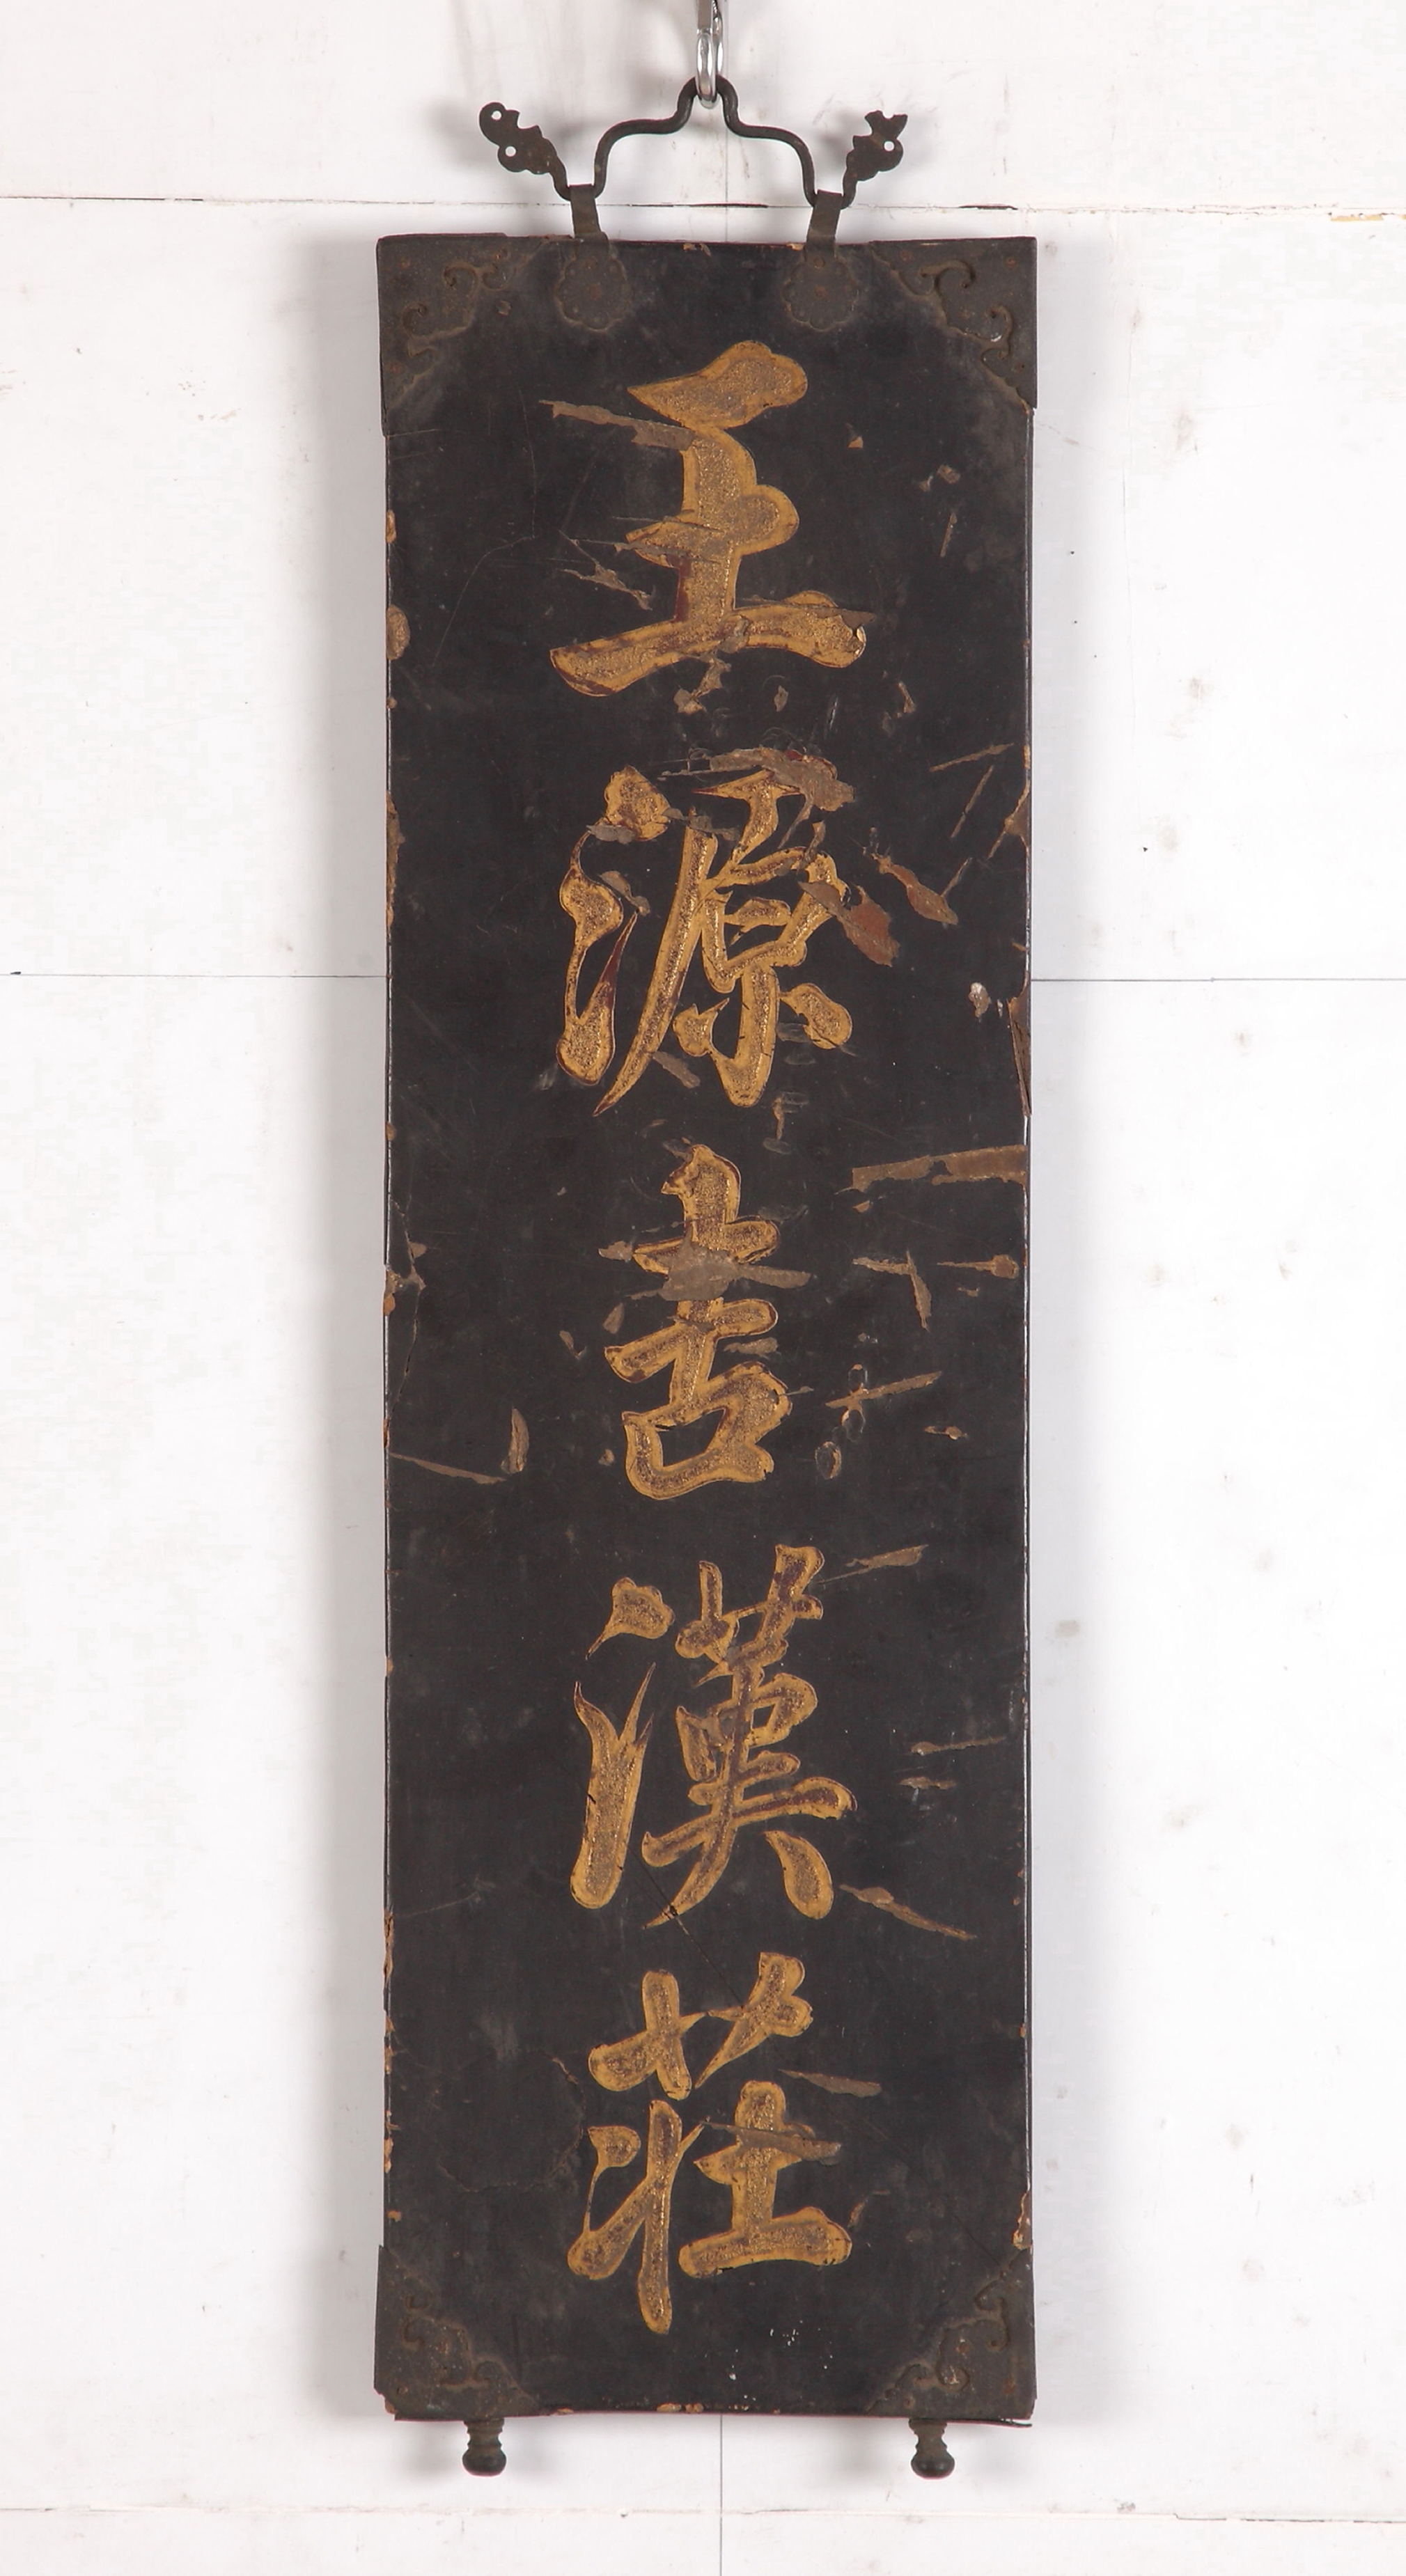 王源吉漢莊